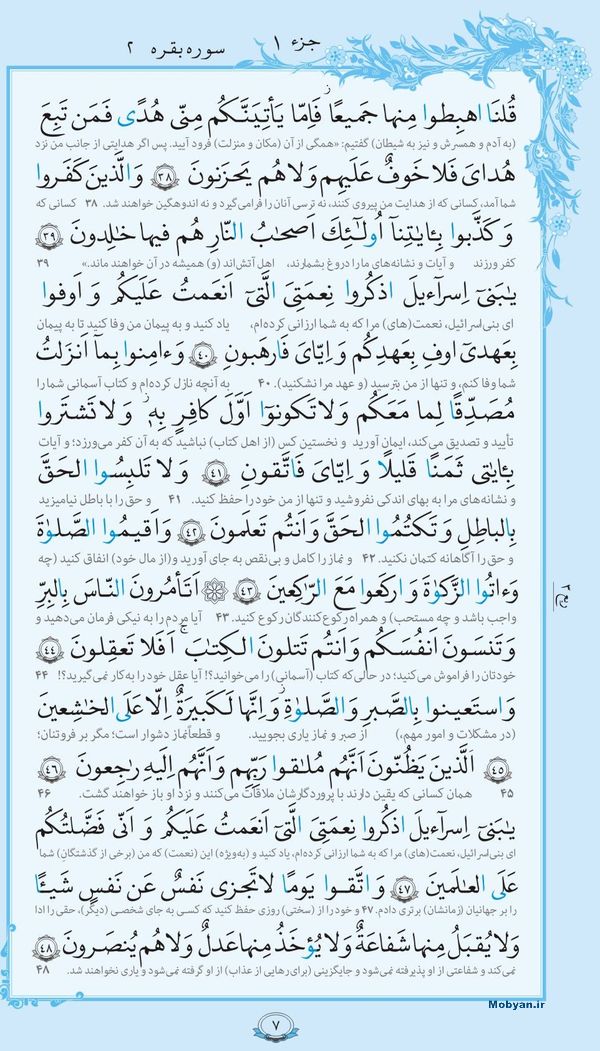 جزء ١
سوره بقره ٢
قُلنَا اهبِطوا مِنها جَمیعًا فَاِمّا یَأتِیَنَّکُم مِنّی هُدًی فَمَن تَبِعَ
(به آدم و همسرش و نیز به شیطان) گفتیم: «همگی از آن (مکان و منزلت) فرود آیید. پس اگر هدایتی از جانب من نزد
هُدایَ فَلا خَوفٌ عَلَیهِم وَلا هُم یَحزَنونَ ٣٨ وَالَّذینَ کَفَروا
شما آمد، کسانی که از هدایت من پیروی کنند، نه ترسی آنان را فرامی‌گیرد و نه اندوهگین خواهند شد. ٣٨ کسانی که
وَ کَذَّبوا بِـٔایٰتِنآ اُولٰٓئِکَ اَصحٰبُ النّارِ هُم فیها خٰلِدونَ ٣٩
کفر ورزند و آیات و نشانه‌های ما را دروغ بشمارند، اهل آتش‌اند (و) همیشه در آن خواهند ماند.» ٣٩
یٰبَنیٓ اِسرآءیلَ اذکُروا نِعمَتِیَ الَّتیٓ اَنعَمتُ عَلَیکُم وَ اَوفوا
ای بنی‌اسرائیل، نعمت(های) مرا که به شما ارزانی کرده‌ام، یاد کنید و به پیمان من وفا کنید تا به پیمان
بِعَهدیٓ اوفِ بِعَهدِکُم وَ اِیّایَ فَارهَبونِ ۴٠ وَءامِنوا بِمآ اَنزَلتُ
شما وفا کنم، و تنها از من بترسید (و عهد مرا نشکنید). ۴٠ به آنچه نازل کرده‌ام و کتاب آسمانی شما را
مُصَدِّقًا لِما مَعَکُم وَلا تَکونوٓا اَوَّلَ کافِرٍ بِهٖ وَلا تَشتَروا
تأیید و تصدیق می‌کند، ایمان آورید و نخستین کس (از اهل کتاب) نباشید که به آن کفر می‌ورزد؛ و آیات
بِـٔایٰتی ثَمَنًا قَلیلًا وَ اِیّایَ فَاتَّقونِ ۴١ وَ لا تَلبِسُوا الحَقَّ
و نشانه‌های مرا به بهای اندکی نفروشید و تنها از من خود را حفظ کنید. ۴١ و حق را با باطل نیامیزید
بِالباطِلِ وَ تَکتُمُوا الحَقَّ وَاَنتُم تَعلَمونَ ۴٢ وَاَقیمُوا الصَّلوٰةَ
و حق را آگاهانه کتمان نکنید. ۴٢ و نماز را کامل و بی‌نقص به جای آورید و (از مال خود) انفاق کنید (چه
وَءاتُوا الزَّکوٰةَ وَ ارکَعوا مَعَ الرّاکِعینَ ۴٣ اَتَأمُرونَ النّاسَ بِالبِرِّ
واجب باشد و چه مستحب) و همراه رکوع‌کنندگان رکوع کنید. ۴٣ آیا مردم را به نیکی فرمان می‌دهید و
وَ تَنسَونَ اَنفُسَکُم وَاَنتُم تَتلونَ الکِتٰبَ ۚ اَفَلا تَعقِلونَ ۴۴
خودتان را فراموش می‌کنید؛ در حالی که کتاب (آسمانی) را می‌خوانید؟! آیا عقل خود را به کار نمی‌گیرید؟! ۴۴
وَ استَعینوا بِالصَّبرِ وَالصَّلوٰةِ وَ اِنَّها لَکَبیرَةٌ اِلّا عَلَی الخٰشِعینَ
(در مشکلات و امور مهم،) از صبر و نماز یاری بجویید. و قطعاً نماز دشوار است؛ مگر بر فروتنان؛
۴۵ اَلَّذینَ یَظُنّونَ اَنَّهُم مُلٰقوا رَبِّهِم وَاَنَّهُم اِلَیهِ رٰجِعونَ ۴۶
۴۵ همان کسانی که یقین دارند با پروردگارشان ملاقات می‌کنند و نزد او باز خواهند گشت. ۴۶
یٰبَنیٓ اِسرآءیلَ اذکُروا نِعمَتِیَ الَّتیٓ اَنعَمتُ عَلَیکُم وَ اَنّی فَضَّلتُکُم
ای بنی‌اسرائیل، نعمت(های) مرا که به شما ارزانی کرده‌ام، یاد کنید و (به‌ویژه) این (نعمت) که من (برخی از گذشتگانِ) شما
عَلَی العٰلَمینَ ۴٧ وَ اتَّقوا یَومًا لا تَجزی نَفسٌ عَن نَفسٍ شَیـًٔا
را بر جهانیان (زمانشان) برتری دادم. ۴٧ و خود را از (سختی) روزی حفظ کنید که کسی به جای شخصی (دیگر)، حقی را ادا
وَلا یُقبَلُ مِنها شَفاعَةٌ وَلا یُؤخَذُ مِنها عَدلٌ وَلا هُم یُنصَرونَ ۴٨
نمی‌کند و شفاعتی از او پذیرفته نمی‌شود و جایگزینی (برای رهایی از عذاب) از او گرفته نمی‌شود و یاری نخواهند شد. ۴٨
٧
Mobyan.ir